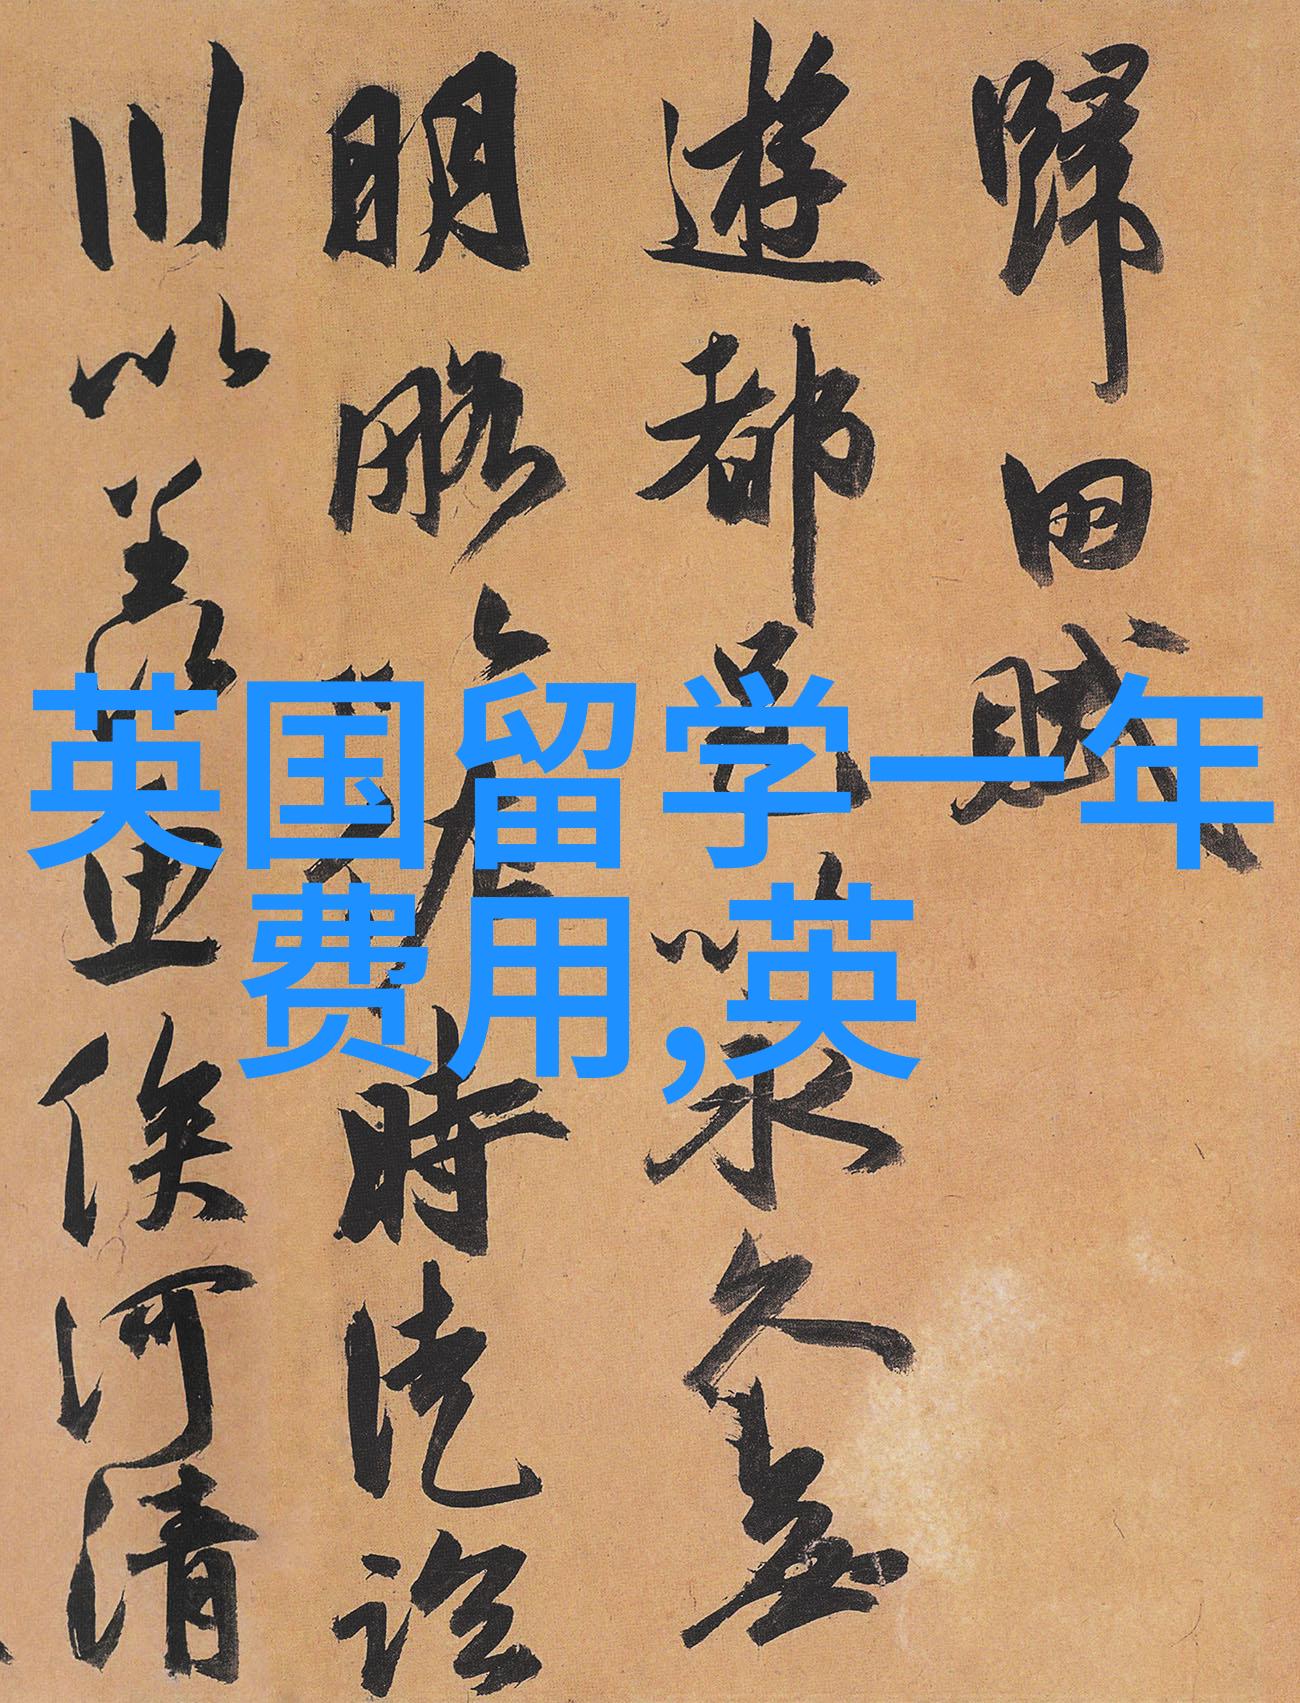 歸田賦
遊都邑以永久無
明略以佐時徒臨
川以羡魚俟河清
英国留学一年
费用,英